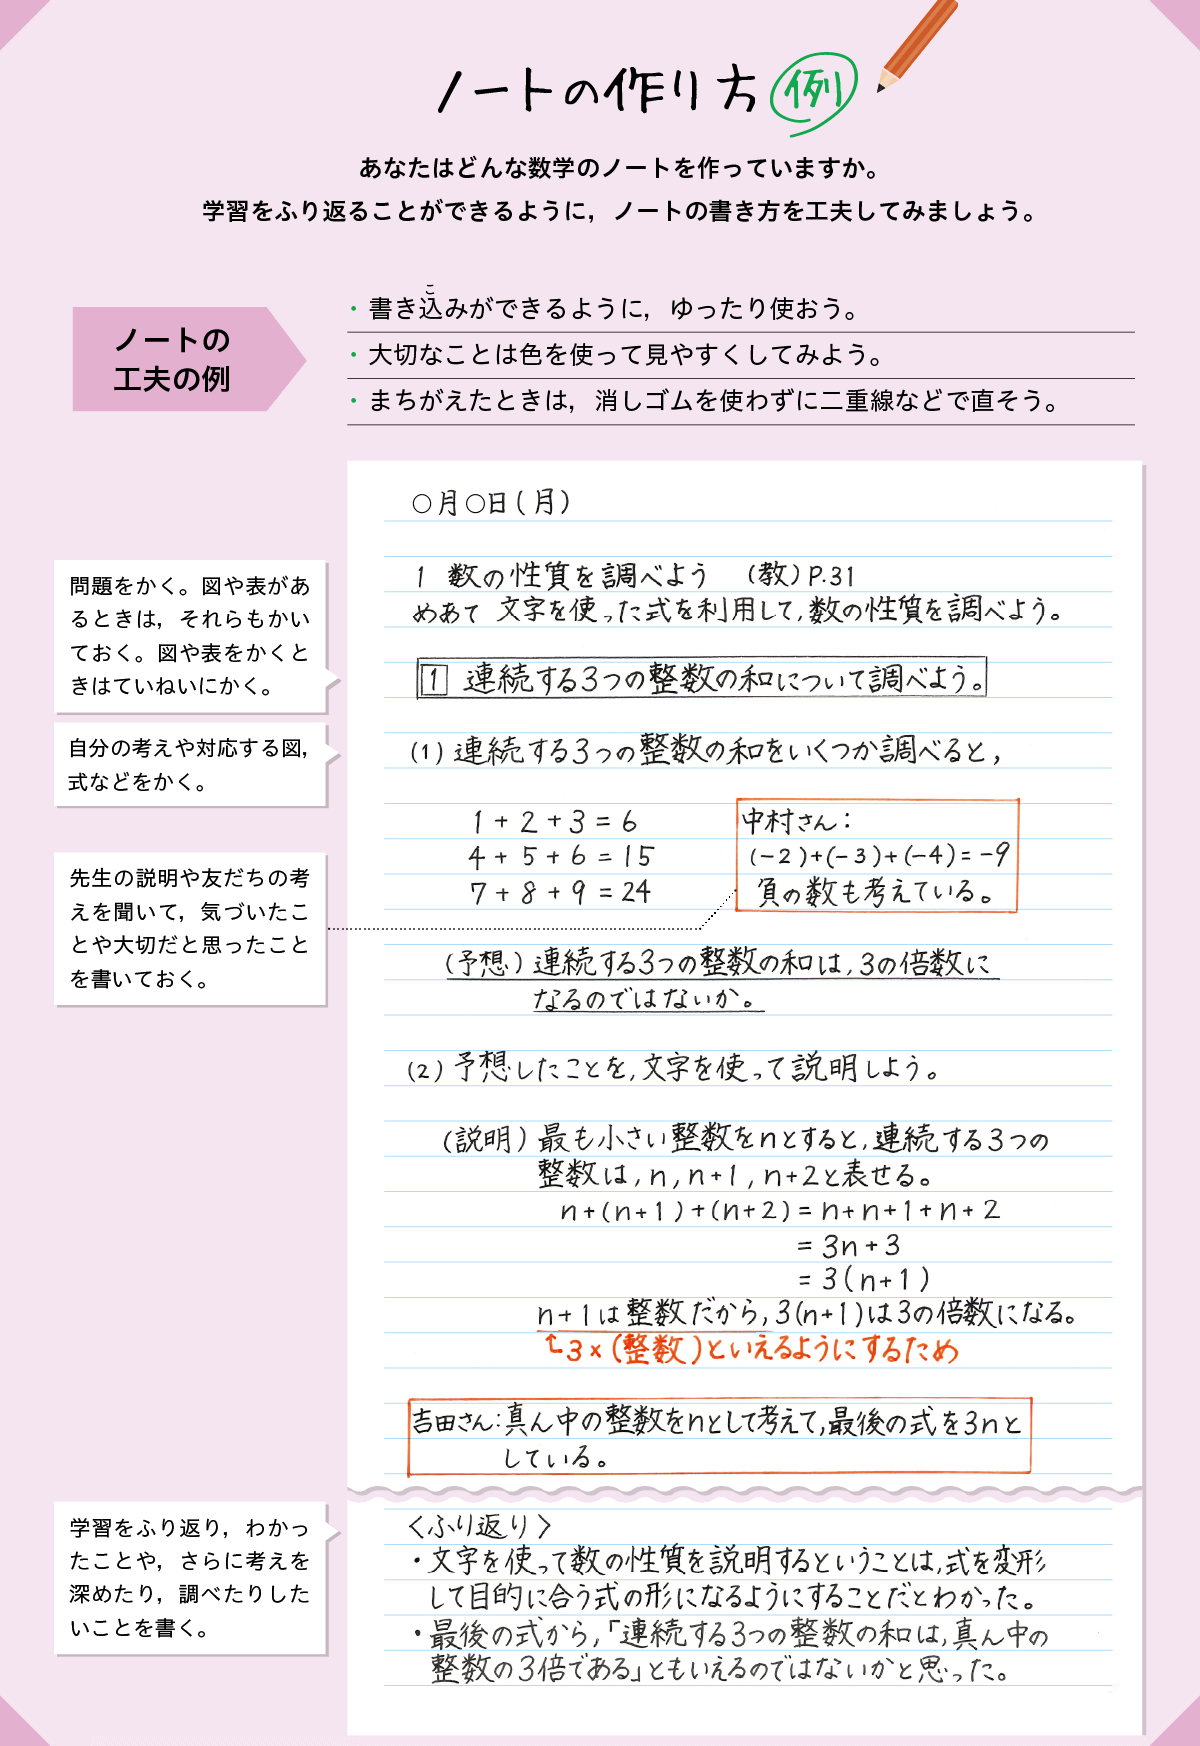 ノートの作り方 例
あなたはどんな数学のノートを作っていますか。
学習をふり返ることができるように，ノートの書き方を工夫してみましょう。
ノートの
工夫の例
こ
・書き込みができるように，ゆったり使おう。
・大切なことは色を使って見やすくしてみよう。
・まちがえたときは，消しゴムを使わずに二重線などで直そう。
○月○日(月)
問題をかく。図や表があ
るときは，それらもかい
ておく。図や表をかくと
きはていねいにかく。
1 数の性質を調べよう （教）P.31
めあて 文字を使った式を利用して，数の性質を調べよう。
1 連続する3つの整数の和について調べよう。
自分の考えや対応する図，
式などをかく。
(1) 連続する3つの整数の和をいくつか調べると，
1+2+3=6
4+5+6=15
7+8+9=24
中村さん：
(-2)+(-3)+(-4)=-9
負の数も考えている。
先生の説明や友だちの考
えを聞いて，気づいたこ
とや大切だと思ったこと
を書いておく。
(予想) 連続する3つの整数の和は，3の倍数に
なるのではないか。
(2) 予想したことを，文字を使って説明しよう。
(説明) 最も小さい整数をnとすると，連続する3つの
整数は，n，n+1，n+2と表せる。
n+(n+1)+(n+2)=n+n+1+n+2
=3n+3
=3(n+1)
n+1は整数だから，3(n+1)は3の倍数になる。
3×(整数)といえるようにするため
吉田さん：真ん中の整数をnとして考えて，最後の式を3nと
している。
学習をふり返り，わかっ
たことや，さらに考えを
深めたり，調べたりした
いことを書く。
〈ふり返り〉
・文字を使って数の性質を説明するということは，式を変形
して目的に合う式の形になるようにすることだとわかった。
・最後の式から，「連続する3つの整数の和は，真ん中の
整数の3倍である」ともいえるのではないかと思った。